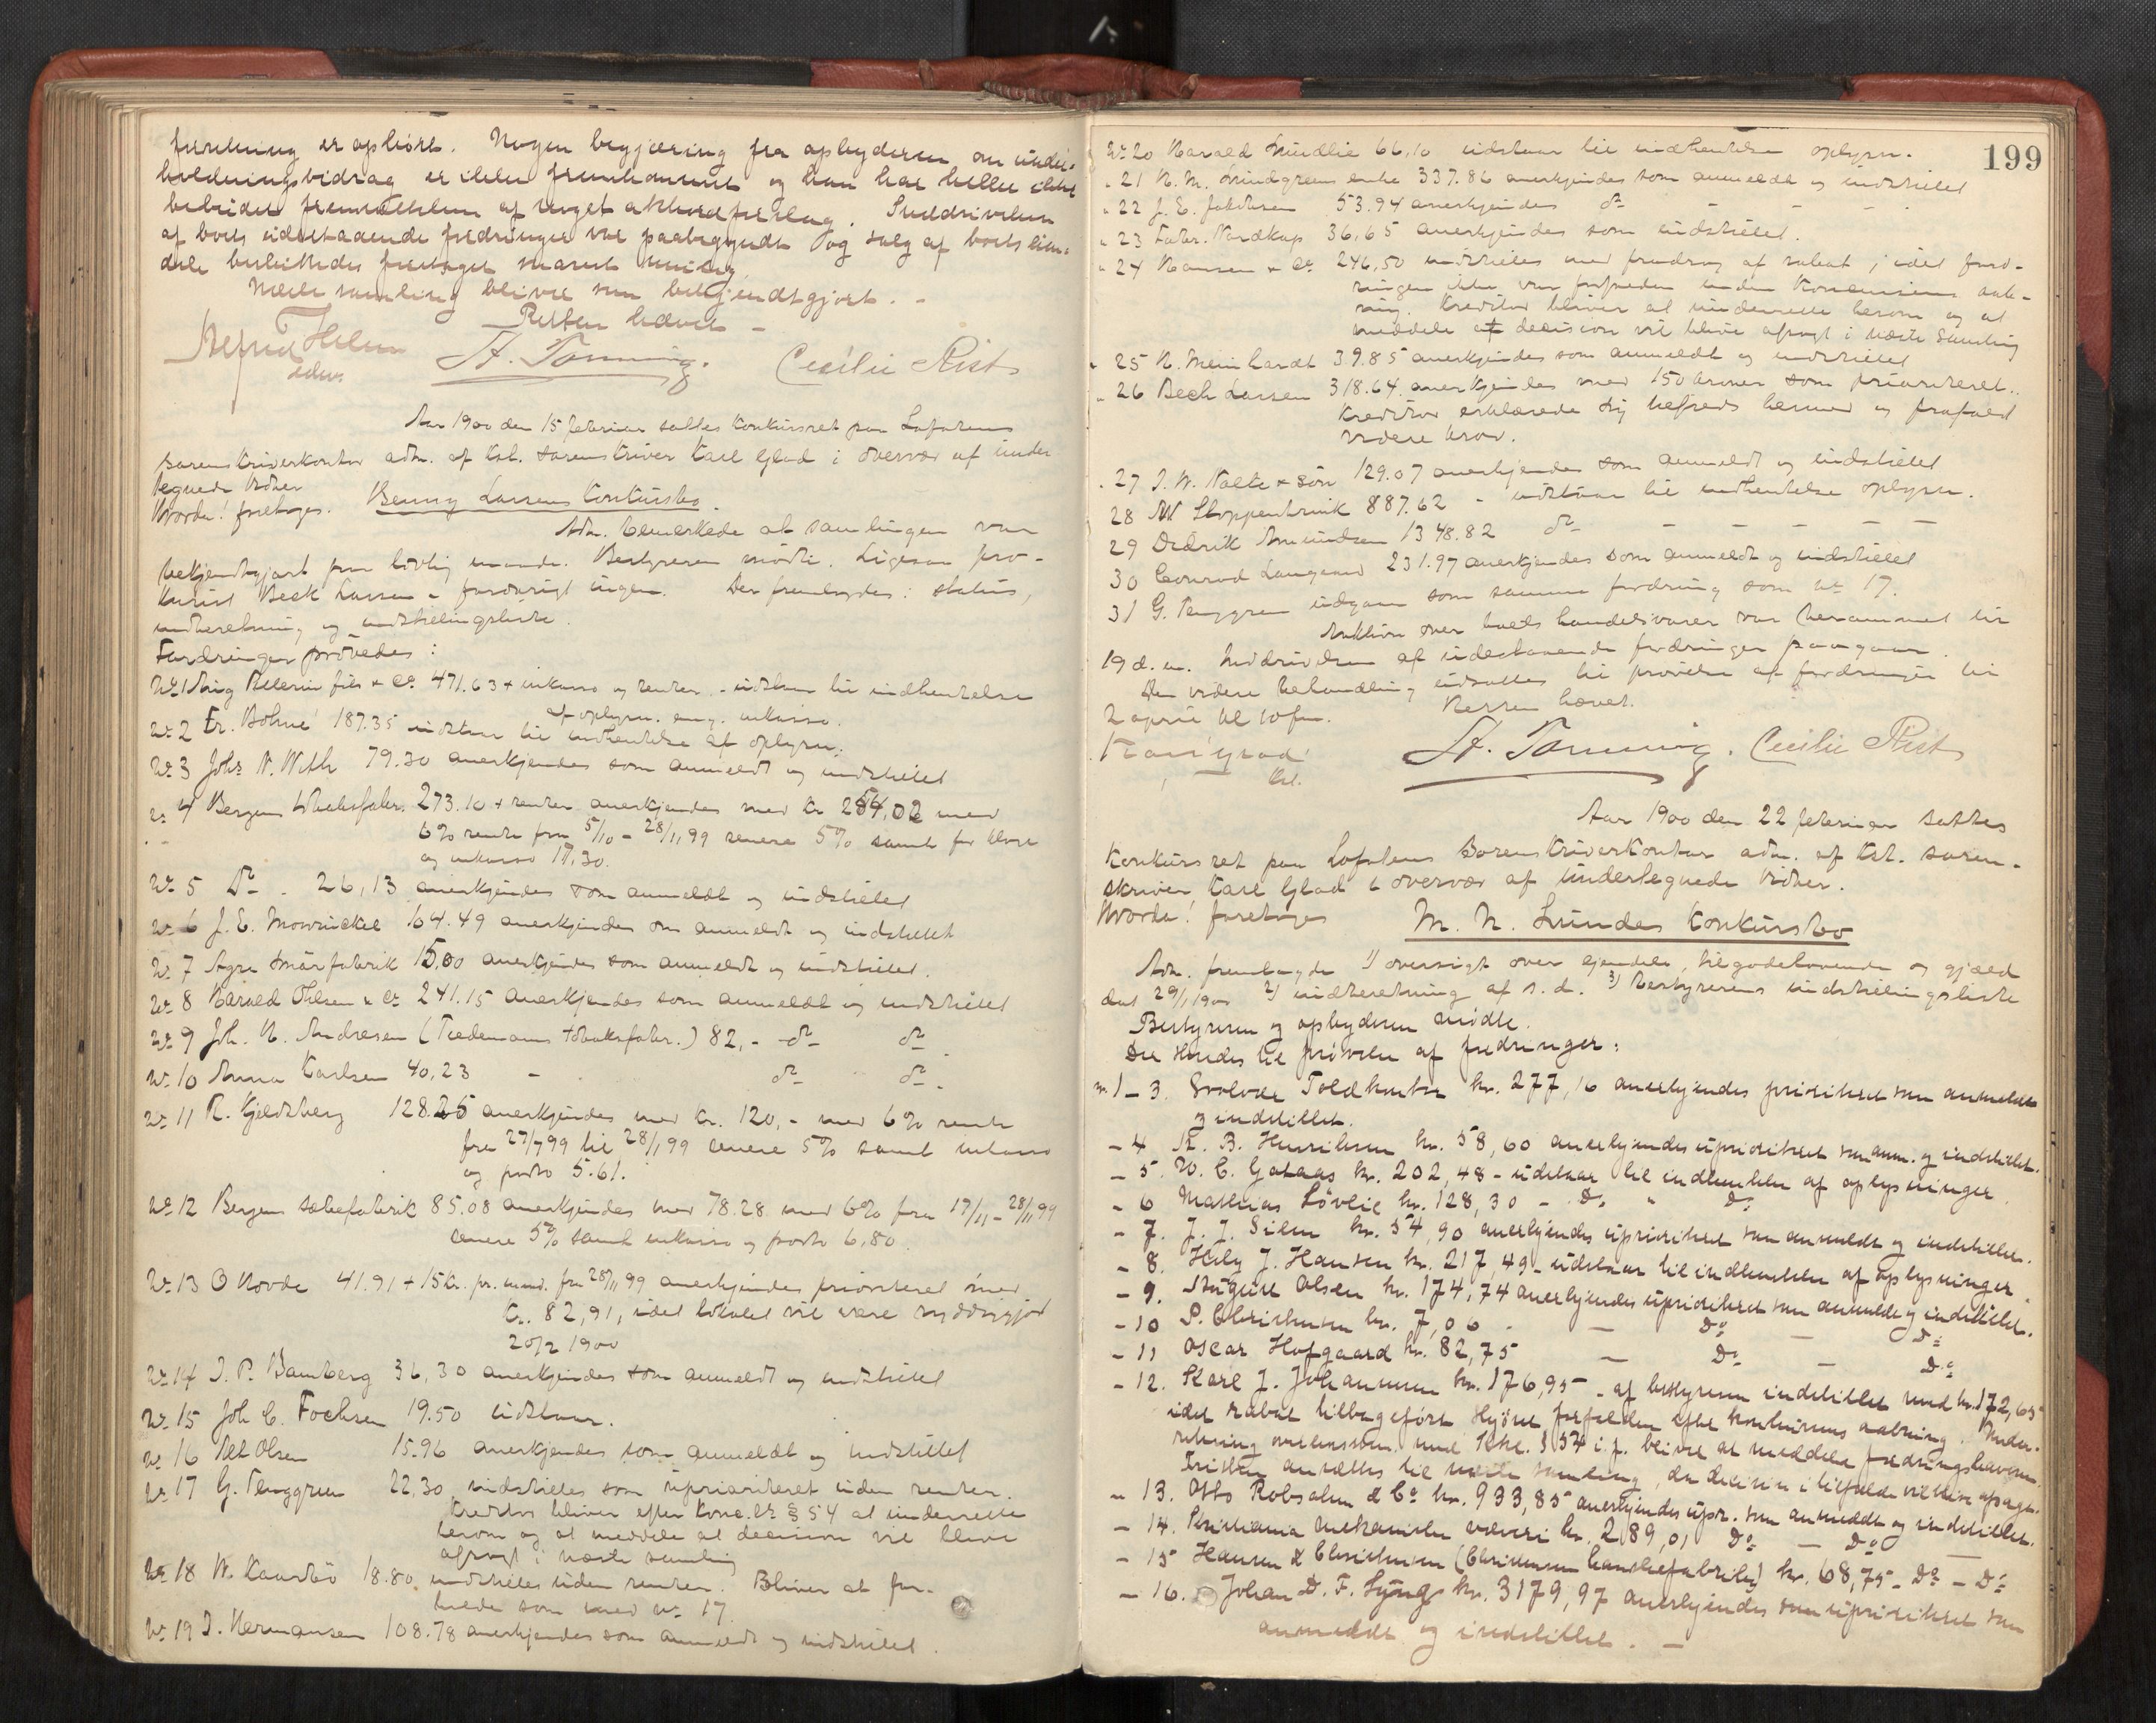 forretning er ophørt. Nogen begjæring fra opbyderen om under-
holdningsbidrag er ikke fremkommet og han har heller ikke
bebudet fremsættelsen af noget akkordforslag. Inddrivelsen
af boets udestaaende fordringer var paabegyndt og salg af boets eien-
dele besluttedes foretaget snarest mulig.
Næste samling bliver kun bekjendtgjort. -
Retten hævet -
Alfred Holm
sdm.
A. Tønning.
Cecilie Rist
Aar 1900 den 15 februar sattes konkursret paa Lofotens
sorenskriverkontor adm. af kst. sorenskriver Karl Glad i overvær af under
tegnede vidner
Hvorda! foretoges. Benny Larsens konkursbo.
Adm. bemerkede at samlingen var
bekjendtgjort paa lovlig maade. Bestyreren mødte. Ligesaa pro-
kurist Beck Larsen - forøvrigt ingen. Der fremlagdes: status,
indberetning og indstillingsliste.
Fordringer prøvedes:
No 1 Aug Pellerin fils & Co. 471.63 + inkasso og renter - udstaar til indhentelse
af oplysn. ang. inkasso.
No 2 Fr. Bohne 187.35 udstaar til indhentelse af oplysn.
No 3 Johs N. With 79.30 anerkjendes som anmeldt og indstillet
No 4 Bergens tobaksfabr. 273.10 + renter anerkjendes med kr 254,02 med
6% rente fra 5/10 - 28/11 99 senere 5% samt for
og inkasso 17.30.
No 5 Do - 26,13 anerkjendes som anmeldt og indstillet
No 6 J. E. Mowinckel 64.49 anerkjendes som anmeldt og indstillet
No 7 Agra smørfabrik 15.00 anerkjendes som anmeldt og indstillet.
No 8 Harald Ohlsen & Co 241.15 anerkjendes som anmeldt og indstillet
No 9 Joh. H. Andresen (Tiedemans tobaksfabr.) 82,- do do
No 10 Anna Karlsen 40,23 - do do.
No 11 R. Kjeldsberg 128.25 anerkjendes med kr. 120,- med 6% rente
fra 27/7 99 til 28/11 99 senere 5% samt inkasso
og porto 5.61.
No 12 Bergens sæbefabrik 85.08 anerkjendes med 78.28 med 6% fra 17/11 - 28/11 99
senere 5% samt inkasso og porto 6,80.
No 13 O Hovde 41.91 + 15 kr. pr. maand. fra 28/11 99 anerkjendes prioriteret med
kr. 82,91, idet lokalet vil være ryddiggjort
20/2 1900
No 14 J. P. Bamberg 36,30 anerkjendes som anmeldt og indstillet
No 15 Joh C. Fochsen 19.50 udstaar.
No 16 Olsen 15.96 anerkjendes som anmeldt og indstillet
No 17 G. Tenggren 22.30 indstilles som uprioriteret uden renter.
Kreditor bliver efter konc.lv § 54 at underrette
herom og at meddele at decision vil blive
afsagt i næste samling
No 18 N. Kaarbø 18.80. indstilles uden renter. Bliver at for-
holde som med No 17.
No 19 J. Hermansen 108.78 anerkjendes som anmeldt og indstillet.
199
No 20 Harald Lindlie 66,10 udstaar til indhentelse oplysn.
" 21 N. M. Lindgrens enke 337.86 anerkjendes som anmeldt og indstillet
" 22 J. E. Jakobsen 53.94 anerkjendes do - - -
" 23 Fabr. Nordkap 36,65 anerkjendes som indstillet.
" 24 Hansen & Co 246,50 indstilles med fradrag af rabat, idet ford-
ringen ikke var forfalden inden konkursens aab-
ning. Kreditor bliver at underrette herom og at
meddele at decision vil blive afsagt i næste samling
" 25 N. Meinhardt 39.85 anerkjendes som anmeldt og indstillet
" 26 Bech Larsen 318.64. anerkjendes med 150 kroner som prioriteret.
Kreditor erklærede sig tilfreds hermed og frafaldt
videre krav.
" 27 J. W. Nolte & søn 129.07 anerkjendes som anmeldt og indstillet
28 Stoppenbrink 887.62 - udstaar til indhentelse oplysn.
29 Didrik Amundsen 1348.82 do - - - -
30 Conrad Langaard 231.97 anerkjendes som anmeldt og indstillet
31 G. Tenggren udgaar som samme fordring som No 17.
Auktion over boets handelsvarer var berammet til
19 d. m. Inddrivelsen af udestaaende fordringer paagaar.
Den videre behandling udsattes til prøvelse af fordringer til
2 april kl 10 fm. Retten hævet.
Karl Glad
kst.
A. Tønning. Cecilie Rist
Aar 1900 den 22 februar sattes
konkursret paa Lofotens sorenskriverkontor adm. af kst. soren-
skriver Karl Glad i overvær af undertegnede vidner.
Hvorda! foretoges M. N. Lundes konkursbo
Adm. fremlagde 1) oversigt over eiendele, tilgodehavende og gjæld
dat 29/1 1900 2) indberetning af s. d. 3) bestyrerens indstillingsliste
Bestyreren og opbyderen mødte.
Der skredes til prøvelse af fordringer:
No 1 - 3. Svolvær Toldkontor kr. 277,16 anerkjendes prioriteret som anmeldt
og indstillet.
- 4 K. B. Henriksen kr. 58,60 anerkjendes uprioriteret som anm. og indstillet.
- 5. O. C. Gataas kr. 202,48 - udstaar til indhentelse af oplysninger
- 6 Mathias Løvlie kr. 128,30 - Do " Do
- 7. J. J. Silen kr. 54,90 anerkjendes uprioriteret som anmeldt og indstillet.
- 8. Hely J. Hansen kr. 217,49 - udstaar til indhentelse af oplysninger.
- 9. August Olsen kr. 174,74 anerkjendes uprioriteret som anmeldt og indstillet.
- 10 P. Christensen kr. 7,06 - - Do - Do
- 11 Oscar Hofgaard kr. 82,75 - Do - Do
- 12. Karl J. Johannesen kr. 176,95 - af bestyreren indstillet med kr. 172,65
idet rabat tilbageført skjønt forfalden efter konkursens aabning. Under-
retning overensstem. med kkl. § 54 i.f. bliver at meddele fordringshaveren.
Fristen ansættes til næste samling, da decision i tilfælde vil blive afsagt.
- 13. Otto Robsahm & Co kr. 933,85 anerkjendes upr. som anmeldt og indstillet.
- 14. Kristiania mekaniske væveri kr. 289,01 Do - Do -
- 15 Hansen & Christensen (Christensens handskefabrik) kr. 68,75 - Do - Do
- 16. Johan D. F. Lyng kr. 3179,97 anerkjendes som uprioriteret som
anmeldt og indstillet. -